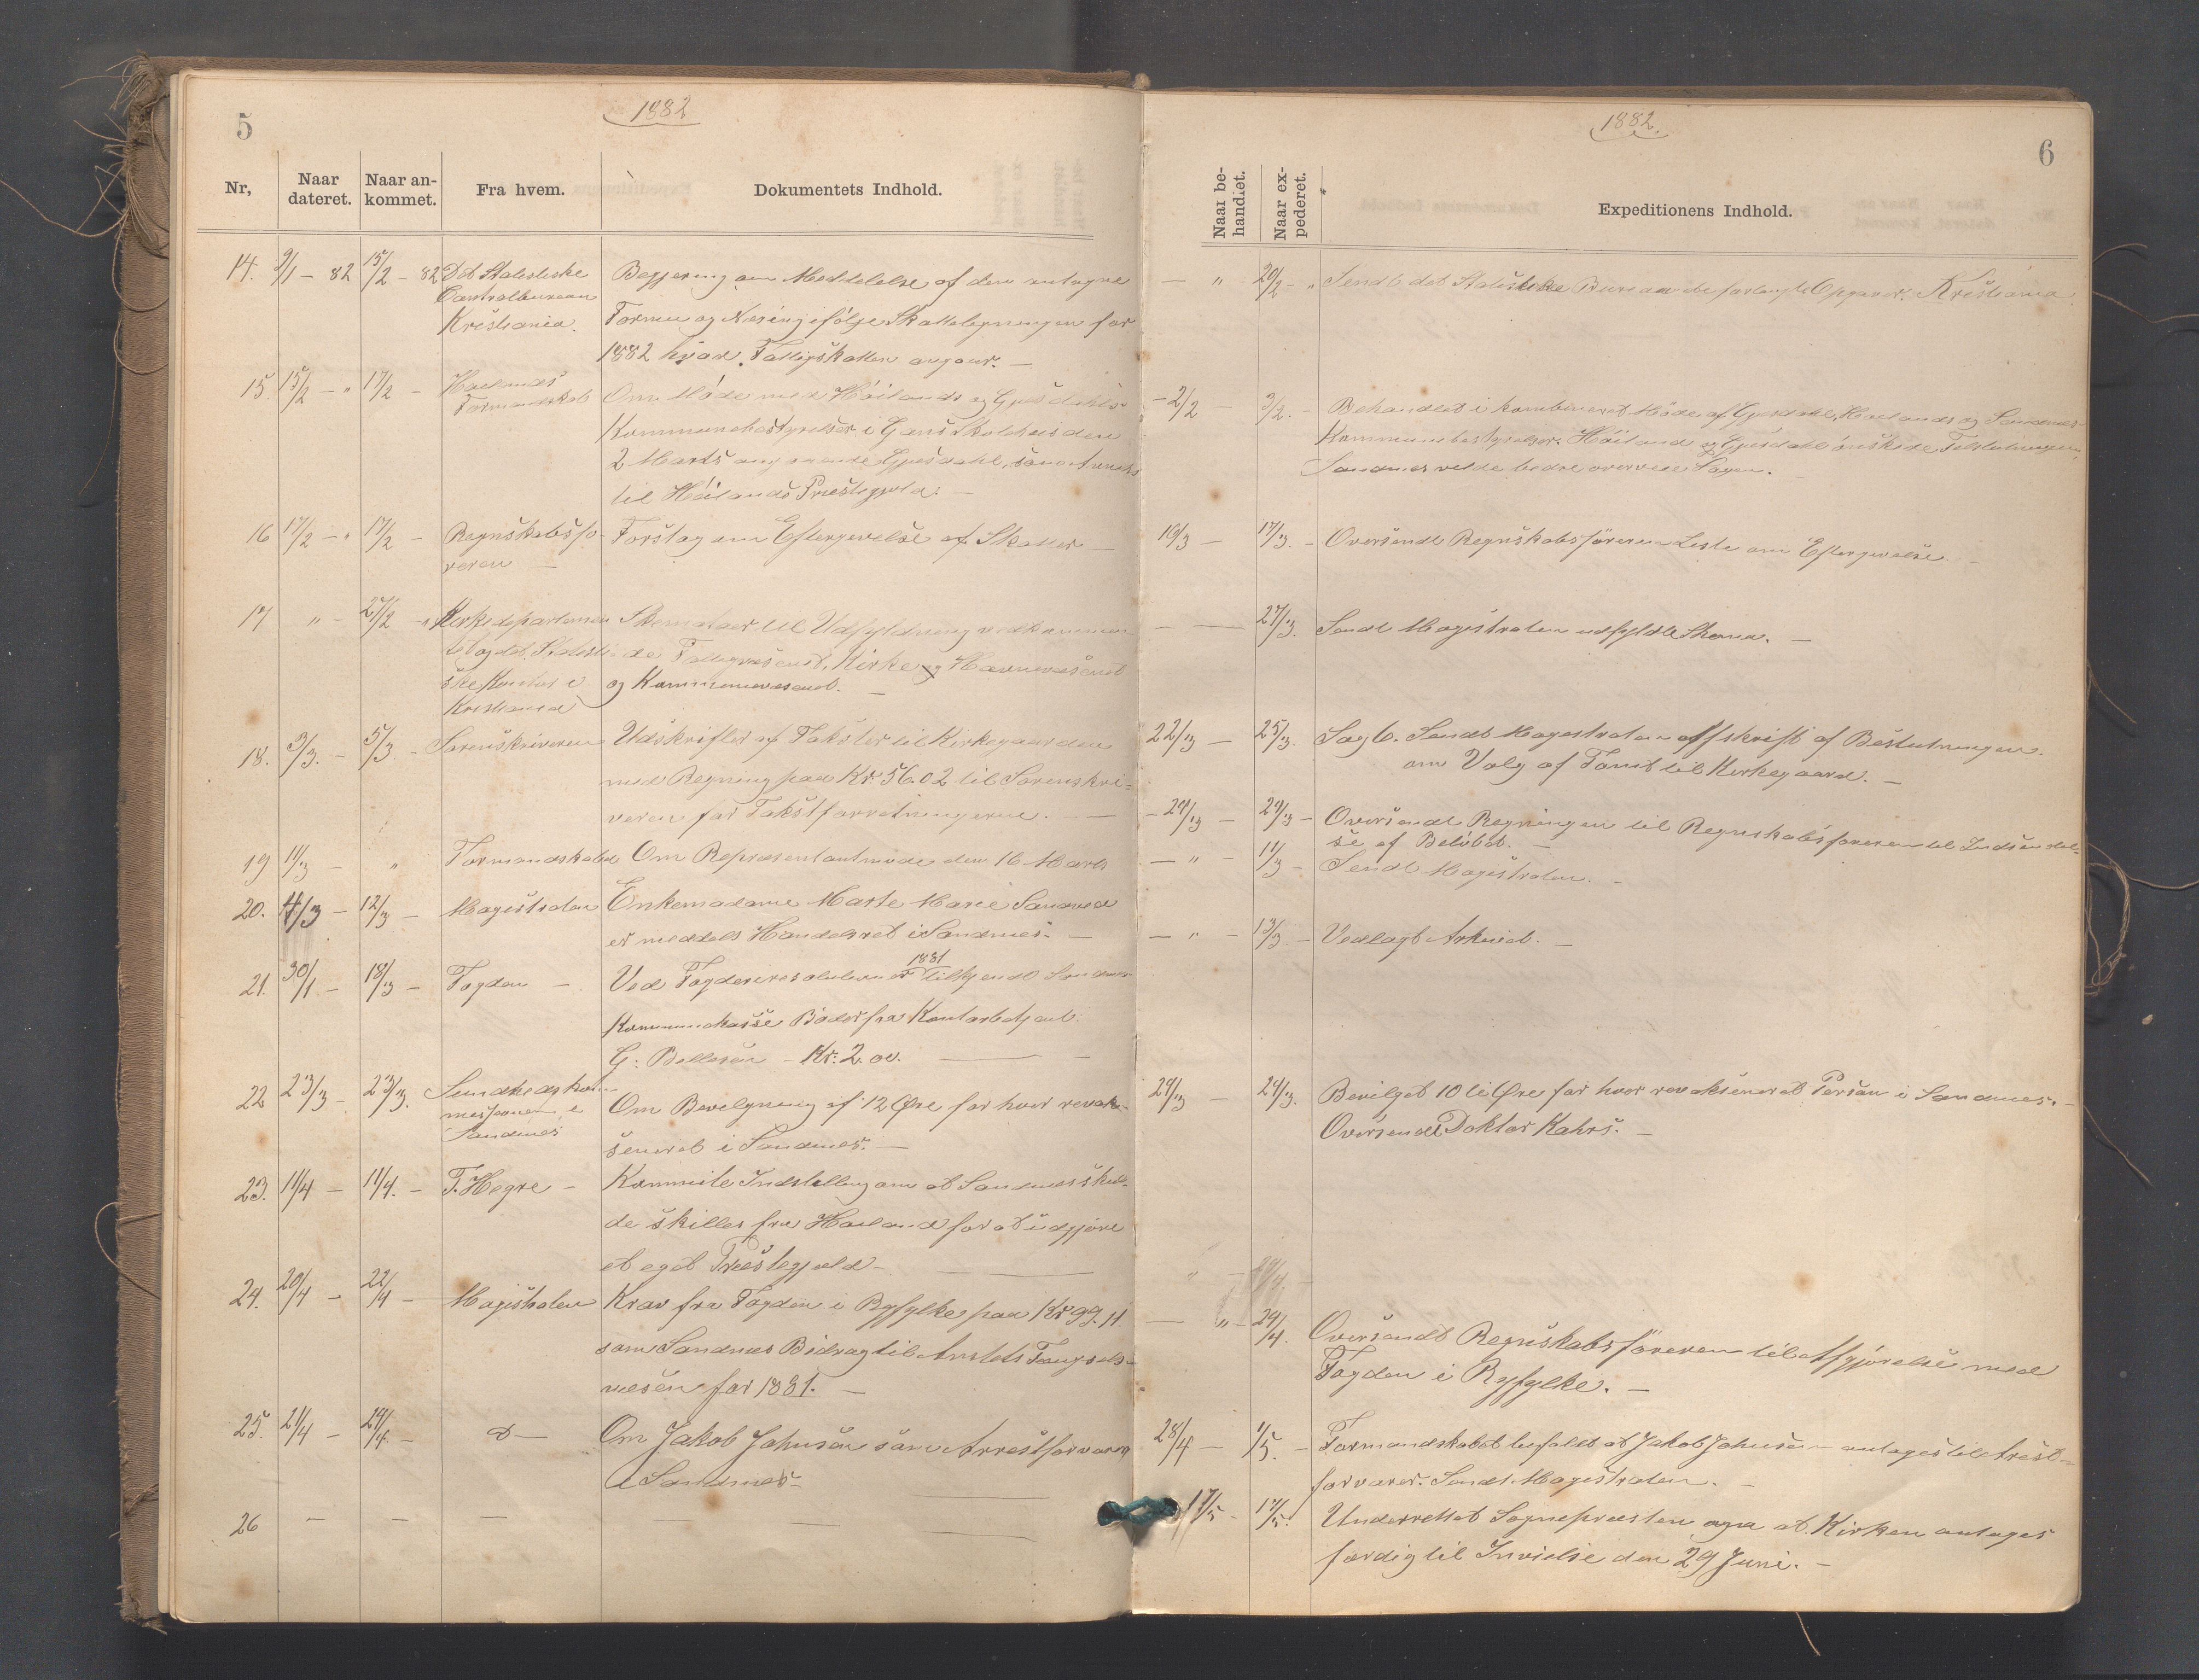 5
1882
Nr,
Naar dateret.
Naar ankommet.
Fra hvem.
Dokumentets Indhold.
14. 9/1 – 82 15/2 – 82 Det Statistiske Begjering om Meddelelse af den antagne
Centralbureau
Kristiania. Formue og Næring ifölge Skattelegningen for
1882 hvad Fattigskatten angaar. –
15. 15/2 – " 17/2 – Haalands Formandskab Om Möde med Höilands og Gjesdahls
Kommunebestyrelser i Gans Skolehus den
2 Marts angaaende Gjesdahl som Annex
til Höilands Præstegjeld. –
16 17/2 – " 17/2 – Regnskabsfö- Forslag om Eftergivelse af Skatter –
reren –
17 " – 27/2 – " Kirkedepartemen Skemataer til Udfyldning vedkommen
tet og det Statisti- de Fattigvæsenet, Kirke og Havnevæsenet
ske Kontor i og Kommunevæsenet. –
Kristiania
18. 3/3. – 5/3 – Sorenskriveren Udskrifter af Takster til Kirkegaarden
med Regning paa Kr. 56.02 til Sorenskri-
veren for Takstforretningerne. –
19 11/3 – " Formandskabet Om Repræsentantmöde den 16 Marts
20. 4/3 – 12/3 – Magistraten Enkemadame Marte Marie Sandved
er meddelt Handelsret i Sandnes. –
21. 30/1 – 18/3 – Fogden – Ved Fogderiresolutioner 1881 tilkjendt Sandnes
Kommunekasse Böder fra Kontorbetjent
G. Bellesen – Kr. 2.00. –
22 23/3 – 23/3. Sundhedskom-
missionen i Om Bevilgning af 12 Øre for hver revak-
Sandnes
seneret i Sandnes. –
23. 11/4 – 11/4. – T. Hegre – Kommite Indstilling om at Sandnes skul-
de skilles fra Haaland for at udgjöre
et eget Præstegjeld –
24. 20/4 – 22/4 – Magistraten Krav fra Fogden i Ryfylke paa Kr 99.11
som Sandnes Bidrag til Amtets Fængsels-
væsen for 1881. –
25. 21/4 – 24/4. – d – Om Jakob Johnsen som Arrestforvarer
i Sandnes –
26 – – – – – –
1882.
6
Naar behandlet.
Naar expederet.
Expeditionens Indhold.
– " – 20/2 – " Sendt det Statistiske Bureau de forlangte Opgaver. Kristiania.
– 2/2 – 3/2. – Behandlet i kombineret Möde af Gjesdahl, Haalands og Sandnes
Kommunebestyrelser. Höiland og Gjesdahl önskede Tilslutningen,
Sandnes vilde bedre overveie Sagen.
16/3 – 17/3. – Oversendt Regnskabsföreren Liste om Eftergivelse –
– – 27/3. Sendt Magistraten udfyldte Skema. –
22/3 – 25/3. Sag 6. Sendt Magestraten Afskrift af Beslutningen
om Valg af Tomt til Kirkegaard. –
– 29/3 – 29/3 – Oversendt Regningen til Regnskabsföreren til Indsendel-
se af Belöbet. –
– " – 11/3 – Sendt Magistraten. –
– " – 13/3. – Vedlagt Arkivet. –
24/3 – 24/3. Bevilget 10 ti Øre for hver revakseneret Person i Sandnes. –
Oversendt Doktor Kahrs. –
– " – 24/4. Oversendt Regnskabsföreren til Afgjörelse med
Fogden i Ryfylke. –
28/4 – 1/5. – Formandskabet befaldt at Jakob Johnsen antages til Arrest-
forvarer. Sendt Magestraten. –
17/5 – 17/5. Underrettet Sognepresten om at Kirken antages
færdig til Invielse den 29 Juni. –